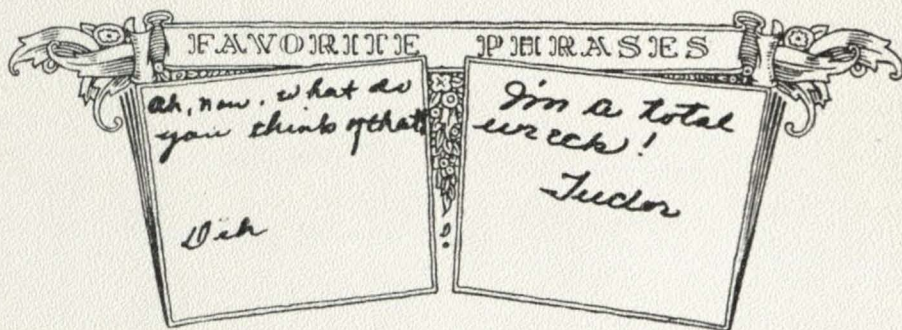 FAVORITE PHRASES
Ah, now, what do
you think of that?
Dick
I'm a total
wreck!
Tudor